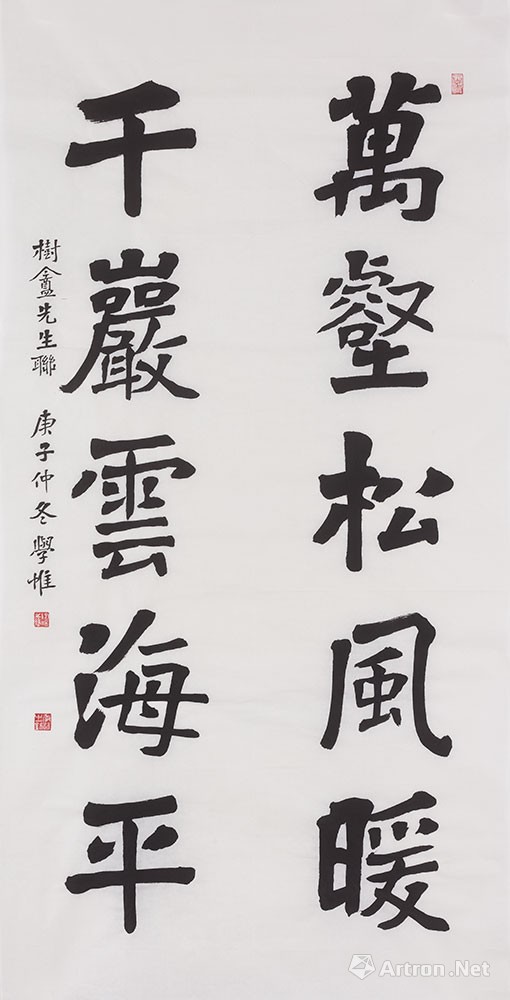 萬壑松風暖
千巖雲海平
樹盦先生聯 庚子仲冬學惟
Artron.Net